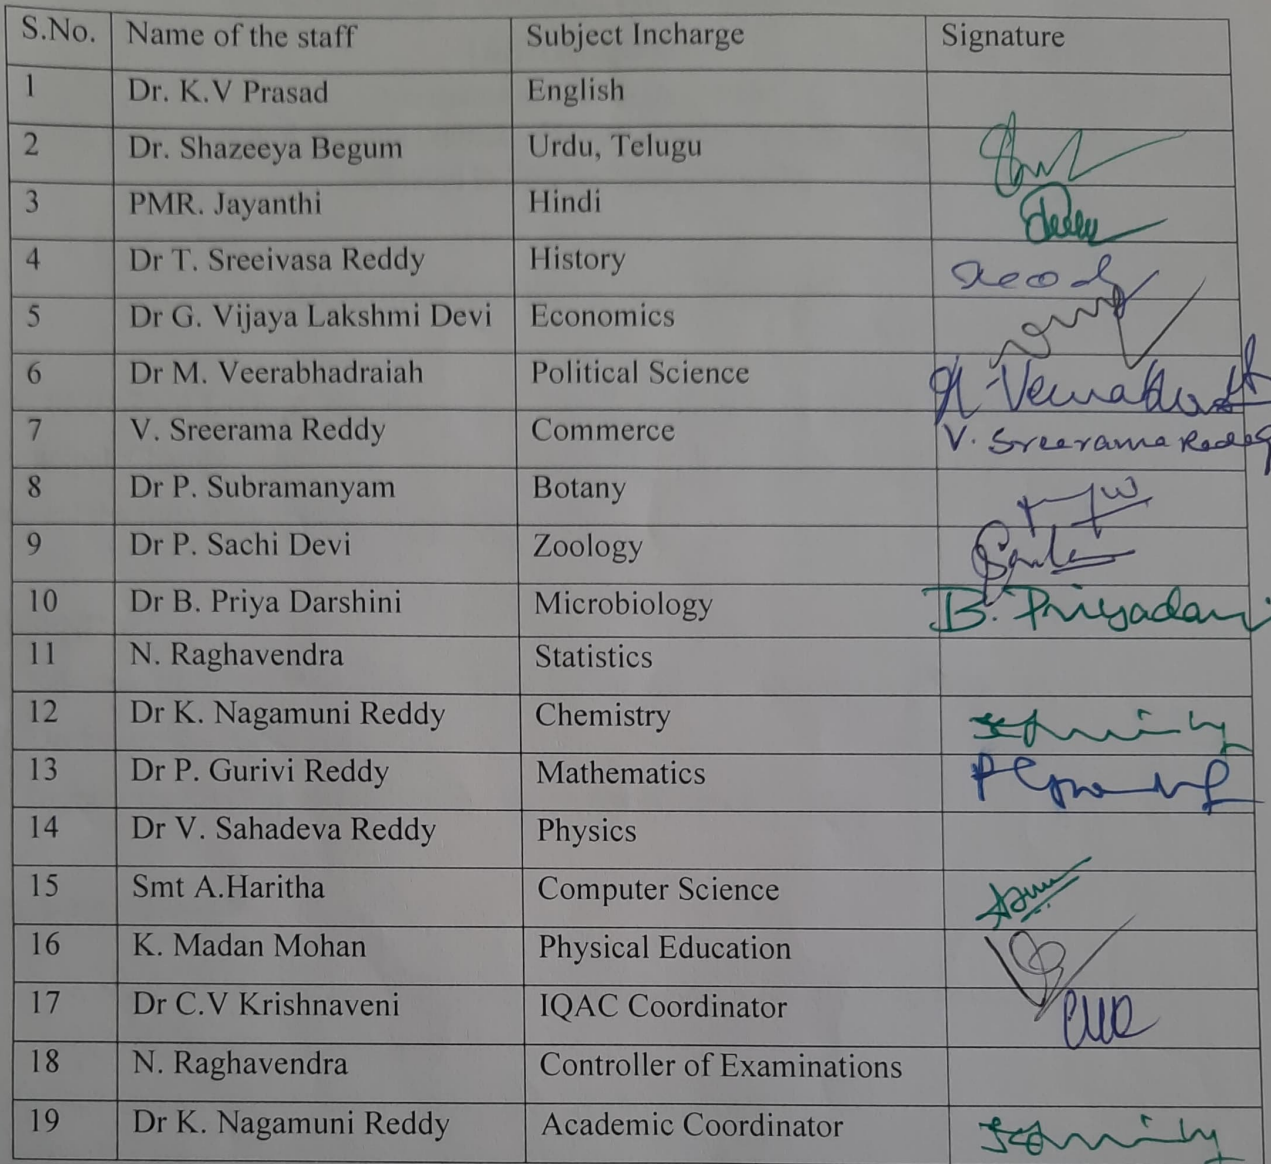 S.No. Name of the staff Subject Incharge Signature
1 Dr. K.V Prasad English
2 Dr. Shazeeya Begum Urdu, Telugu
3 PMR. Jayanthi Hindi
4 Dr T. Sreeivasa Reddy History
5 Dr G. Vijaya Lakshmi Devi Economics
6 Dr M. Veerabhadraiah Political Science
7 V. Sreerama Reddy Commerce V. Sreerama Reddy
8 Dr P. Subramanyam Botany
9 Dr P. Sachi Devi Zoology
10 Dr B. Priya Darshini Microbiology B.
11 N. Raghavendra Statistics
12 Dr K. Nagamuni Reddy Chemistry
13 Dr P. Gurivi Reddy Mathematics
14 Dr V. Sahadeva Reddy Physics
15 Smt A.Haritha Computer Science
16 K. Madan Mohan Physical Education
17 Dr C.V Krishnaveni IQAC Coordinator
18 N. Raghavendra Controller of Examinations
19 Dr K. Nagamuni Reddy Academic Coordinator